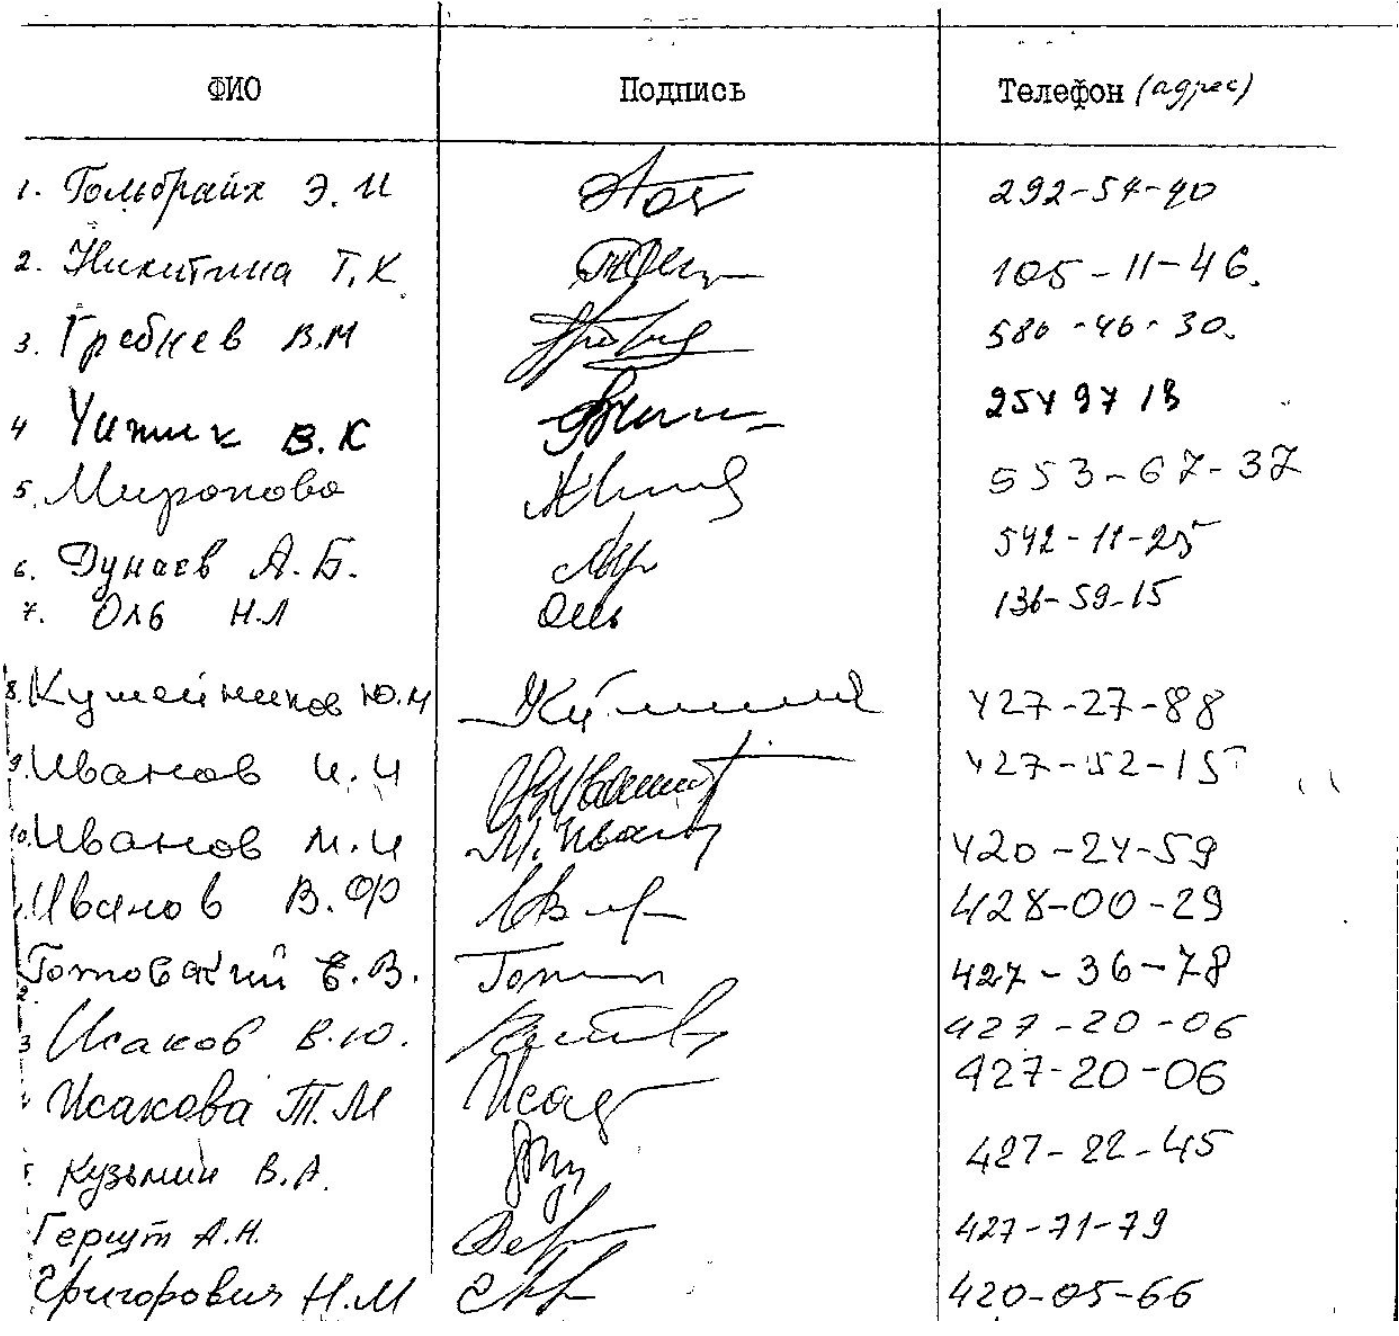 ФИО Подпись Телефон (адрес)
1. Гольбрайх Э.И 292-54-40
2. Никитина Т.К. 105-11-46.
3. Гребнев В.М 586-46-30.
4 Чижик В.К 254 97 13
5. Миронова 553-67-37
6. Дунаев А.Б. 542-11-25
7. Оль Н.Л 136-59-15
8. Ю.М 427-27-88
9. Иванов И.И 427-52-15
10. Иванов М.И М. Иванов 420-24-59
Иванов В.Ф 428-00-29
Е.В. 427-36-78
3 Исаков В.Ю. 427-20-06
Исакова Т.М 427-20-06
Кузьмин В.А. 427-22-45
А.Н. 427-71-79
Григорович Н.М 420-05-66